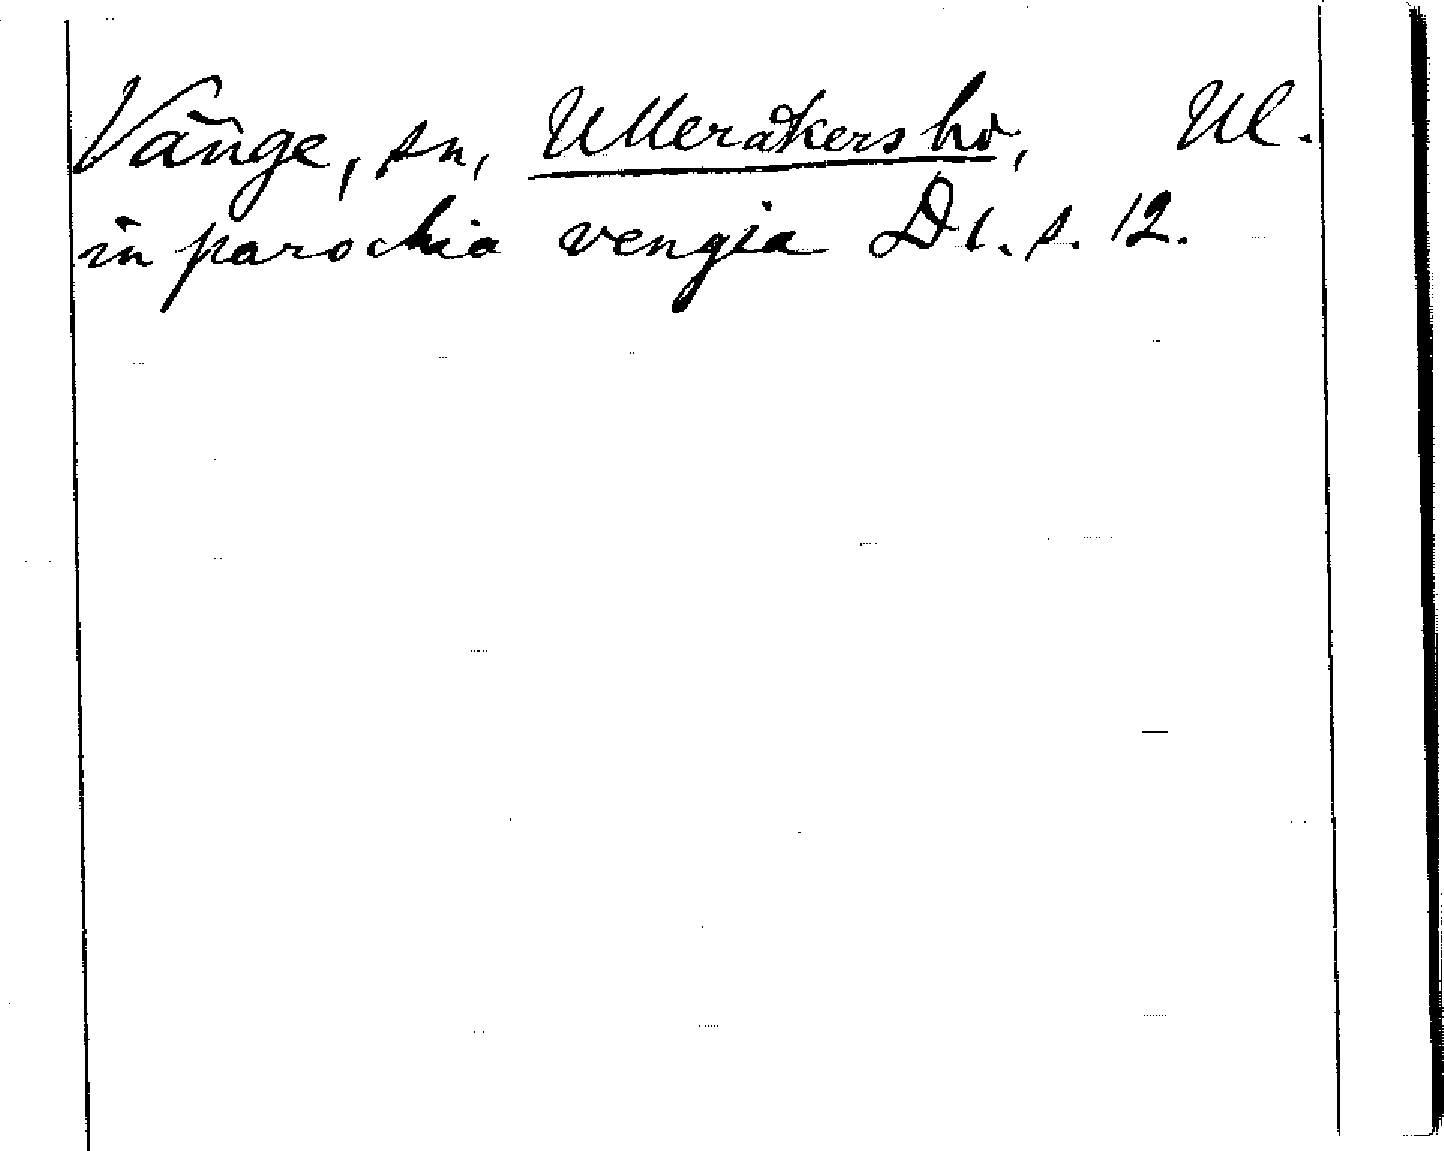 Vänge, sn, Ulleråkers hd, Ul.
in parochia vengia D1. s. 12.